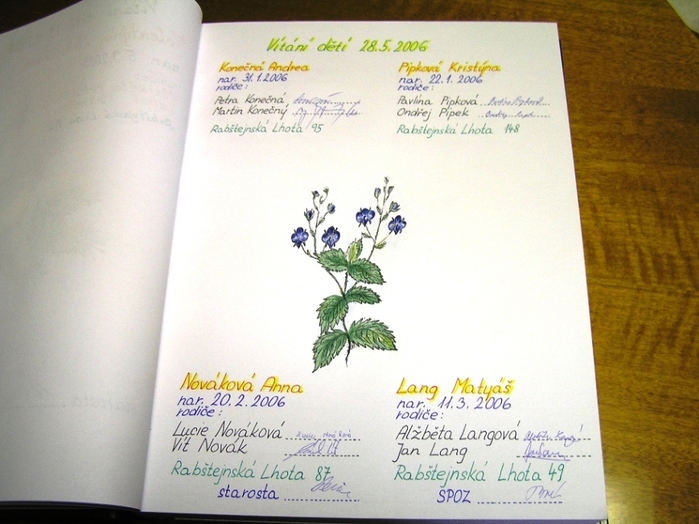 Vítání dětí 28.5.2006
Konečná Andrea
nar. 31.1.2006
rodiče:
Petra Konečná
Martin Konečný
Rabštejnská Lhota 95
Pipková Kristýna
nar. 22.1.2006
rodiče:
Pavlína Pipková
Ondřej Pipek
Rabštejnská Lhota 148
Nováková Anna
nar. 20.2.2006
rodiče:
Lucie Nováková
Vít Novák
Rabštejnská Lhota 87
starosta
Lang Matyáš
nar. 11.3.2006
rodiče:
Alžběta Langová
Jan Lang
Rabštejnská Lhota 49
SPOZ